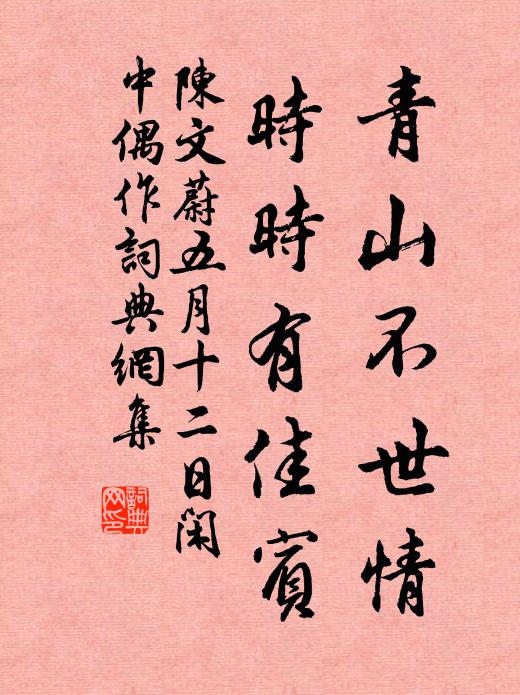 青山不世情
時時有佳賓
陳文蔚五月十二日閑
中偶作詞典網集
詞典
网印